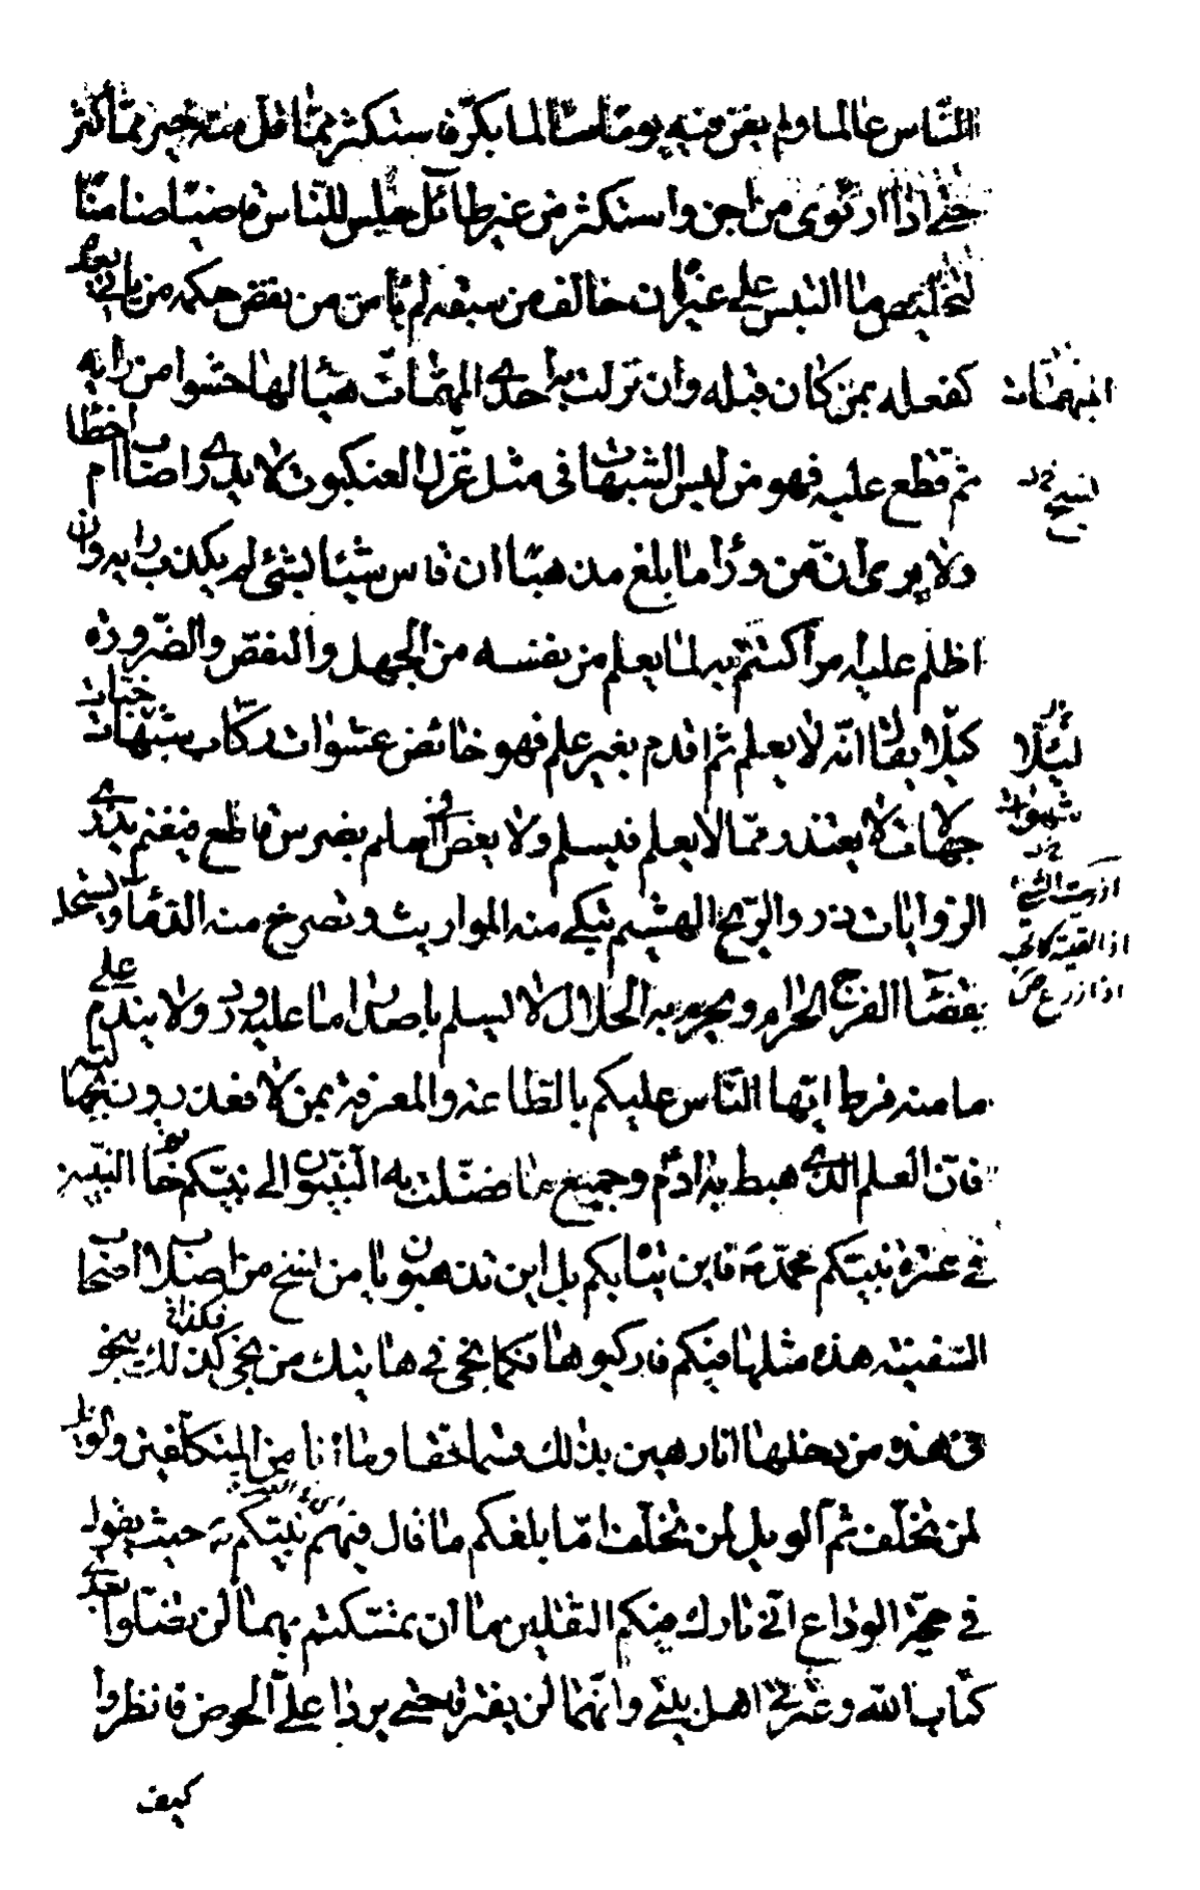 النّاس عالما ولم يغن فيه يوما سالما بكّر فاستكثر ممّا قل منه خير ممّا كثر
حتى اذا ارتوى من اجن واستكثر من غير طائل جلس للنّاس قاضيا ضامنا
لتخليص ما التبس على غيره ان خالف من سبقه لم يأمن من نقض حكمه من يأتي بعده
كفعله بمن كان قبله وان نزلت به احدى المهمّات هيّأ لها حشوا من رأيه
المبهمات
ثم قطع عليه فهو من لبس الشبهات في مثل غزل العنكبوت لا يدرى اصاب ام اخطأ
نسج
ولا يرى انّ من وراء ما بلغ مذهبا ان قاس شيئا بشئ لم يكذب رايه وان
اظلم عليه امر اكتتم به لما يعلم من نفسه من الجهل والنقص والضّرورة
كيلا يقال انّه لا يعلم ثم اقدم بغير علم فهو خائض عشوات ركّاب شبهات خبّاط
لئلّا
جهالات لا يعتذر ممّا لا يعلم فيسلم ولا يعض في العلم بضرس قاطع فيغنم يذرى
الرّوايات ذرو الرّيح الهشيم تبكي منه المواريث وتصرخ منه الدّماء ويستحل
بقضائه الفرج الحرام ويحرم به الحلال لا يسلم باصدار ما عليه ورد ولا يندم على
ما منه فرط ايّها النّاس عليكم بالطّاعة والمعرفة بمن لا تعذرون بجهالته
فانّ العلم الّذى هبط به ادم وجميع ما فضّلت به النّبيّون الى نبيّكم خاتم النّبيّين
في عترة نبيّكم محمّد ص فاين يتاه بكم بل اين تذهبون يا من نسخ من اصلاب اصحاب
السّفينة هذه مثلها فيكم فاركبوها فكما نجى في هاتيك من نجى كذلك ينجو
في هذه من دخلها انا رهين بذلك قسما حقّا وما انا من المتكلّفين والويل
لمن تخلّف ثم الويل لمن تخلّف امّا بلغكم ما قال فيهم نبيّكم ص حيث يقول
في حجّة الوداع انّي تارك فيكم الثقلين ما ان تمسّكتم بهما لن تضلّوا بعدى
كتاب اللّه وعترتي اهل بيتي وانّهما لن يفترقا حتى يردا على الحوض فانظروا
كيف